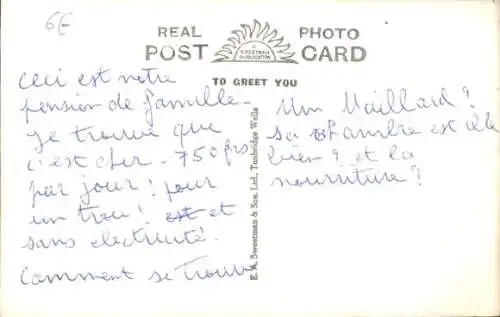 6€
REAL PHOTO
POST CARD
A SWEETMAN PUBLICATION
TO GREET YOU
ceci est notre
pension de famille.
Je trouve que
c'est cher - 750 frs
par jour! pour
un trou! est et
sans electricité.
Comment se trouve
E. A. Sweetman & Son, Ltd., Tunbridge Wells
Maillard?
sa chambre est elle
bien? et la
nourriture?